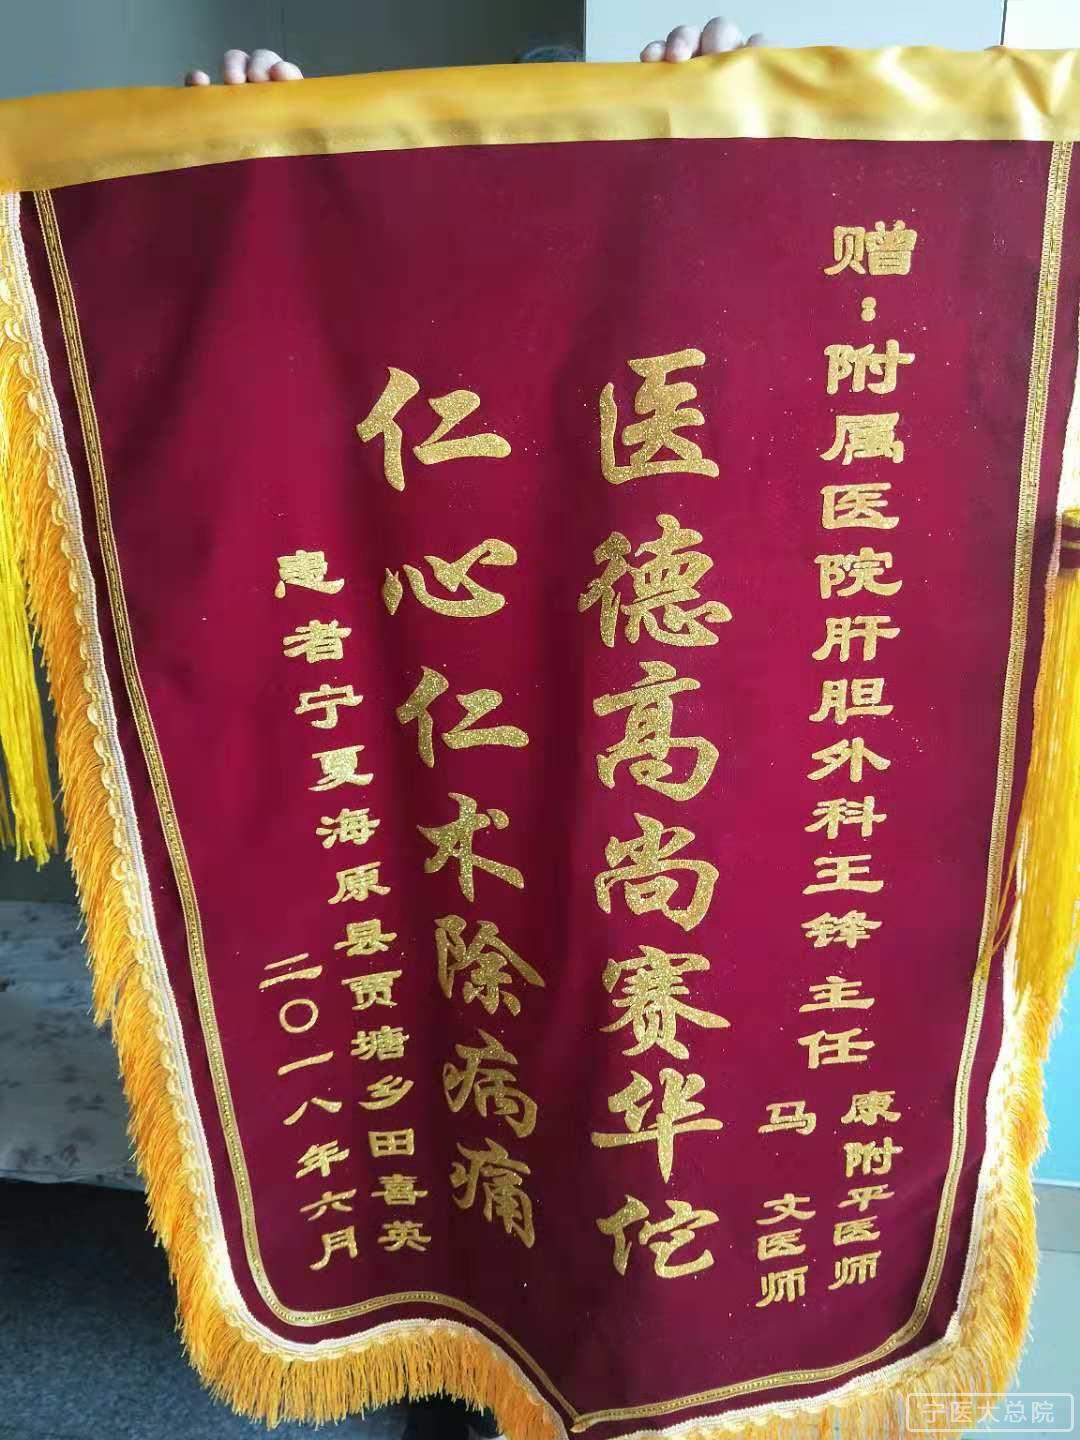 赠：附属医院肝胆外科王锋主任
康附平医师
马 文医师
医德高尚赛华佗
仁心仁术除病痛
患者宁夏海原县贾塘乡田喜英
二〇一八年六月
宁医大总院